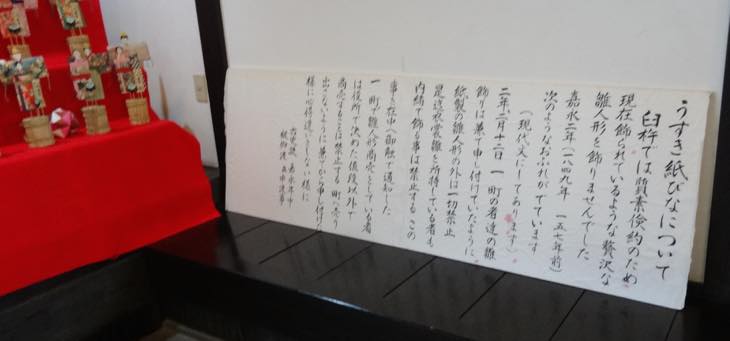 うすき紙びなについて
臼杵では質素倹約のため
現在飾られているような贅沢な
雛人形を飾りませんでした
嘉永二年(一八四九年 一五七年前)
次のようなおふれがでています
(現代文にしてあります)
二年二月十二日 一 町の者達の雛
飾りは兼て申し付けていたように
紙製の雛人形の外は一切禁止
是迄衣裳雛を所持している者も
内緒で飾る事は禁止する この
事を在中へ御触で通知した
一 町で雛人形商売をしている者
は役所で決めた値段以外で
商売することは禁止する 町へ売り
出さないように兼てから申し付け
様に心得違いをしない様に